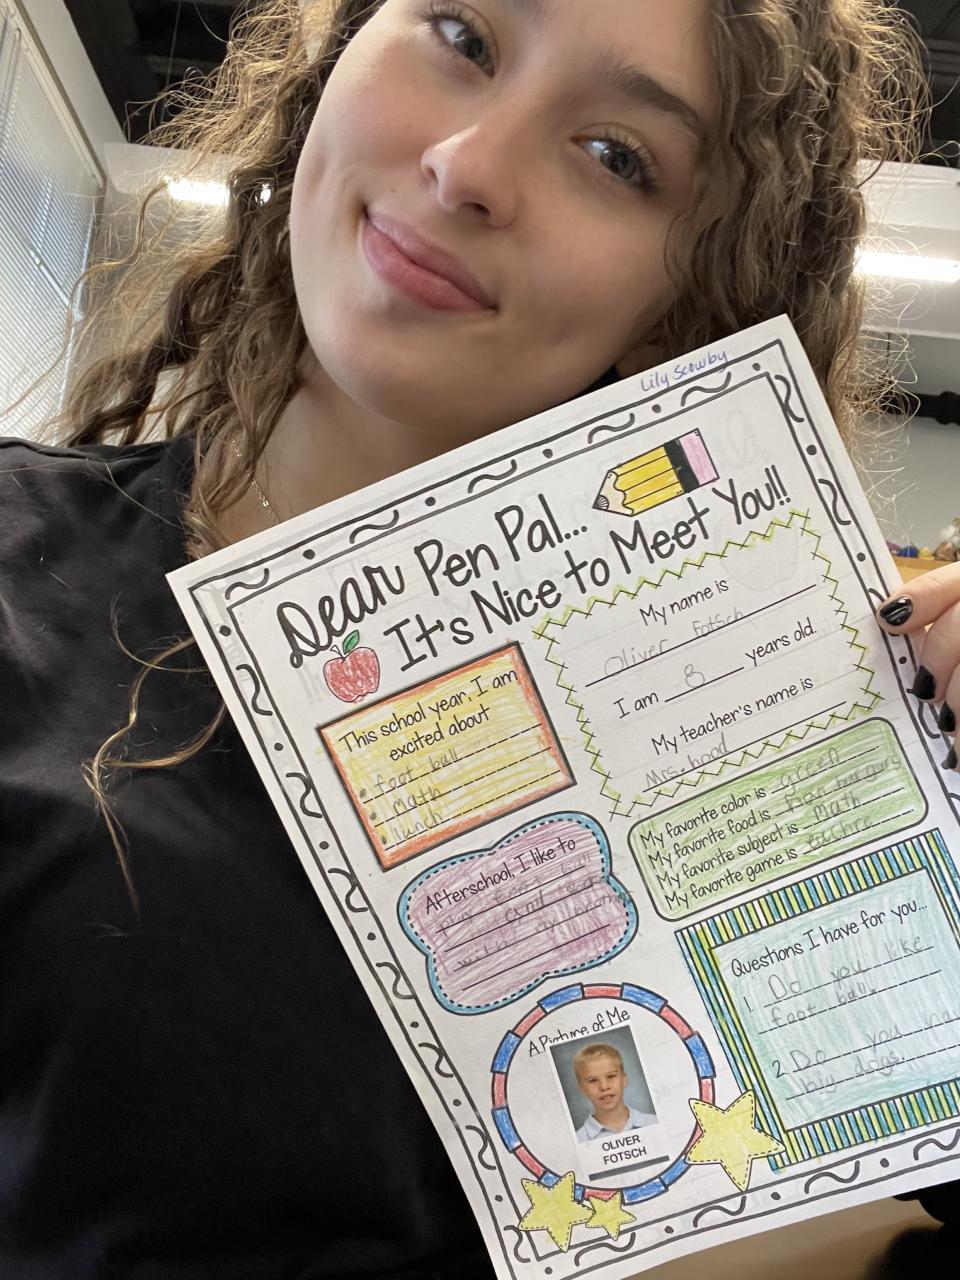 Lily Scowby
Dear Pen Pal...
It's Nice to Meet You!!
My name is
Oliver Fotsch
I am 8 years old.
My teacher's name is
Mrs. hood
This school year, I am
excited about
foot ball
math
lunch
My favorite color is green
My favorite food is
My favorite subject is Math
My favorite game is euchre
Afterschool, I like to
play foot ball
and
with my brother
Questions I have for you...
1. Do you like
foot ball.
2. Do you hav
big dogs.
A Picture of Me
OLIVER
FOTSCH